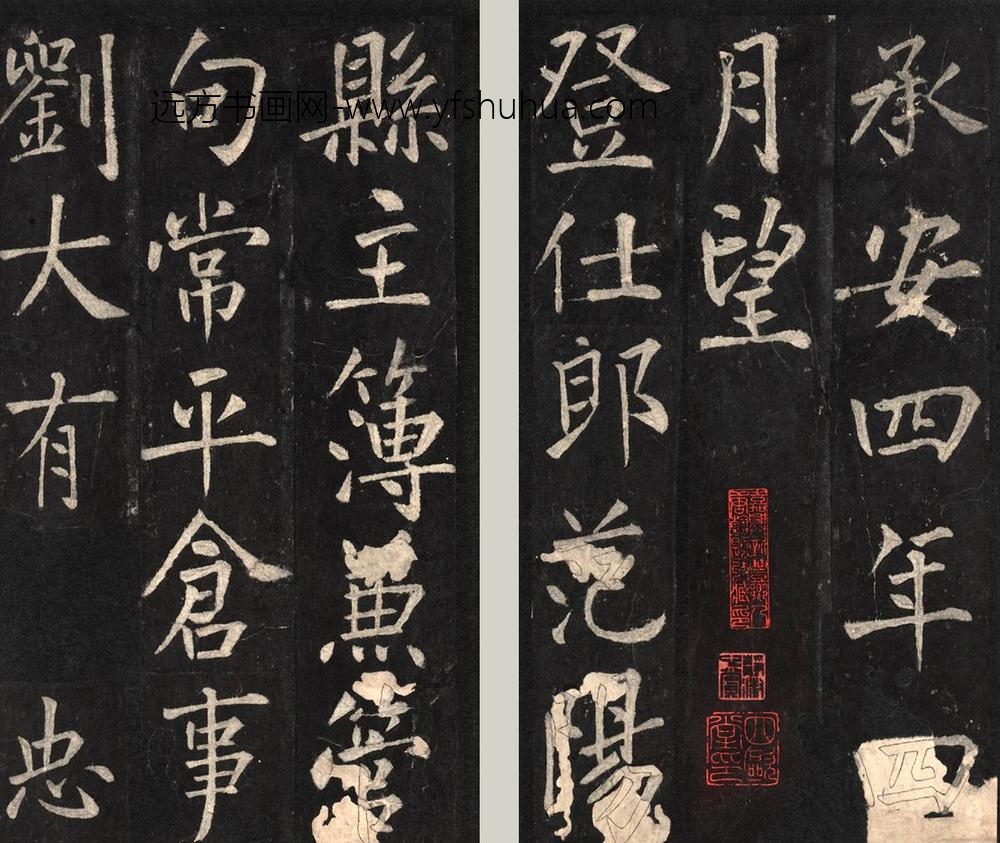 承安四年四
月望
登仕郎范陽
縣主簿兼管
句常平倉事
劉大有 忠
远方书画网-www.yfshuhua.com